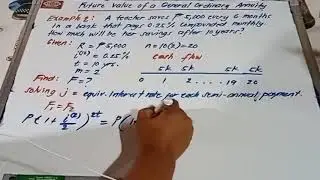 Future Value of a General Ordinary Annuity
Example 2: A teacher saves ₱5,000 every 6 months
in a bank that pays 0.25% compounded monthly.
How much will be her savings after 10 years?
Given: R = ₱5,000 n = 10(2) = 20
i(12) = 0.25% cash flow
t = 10 yrs. 5k 5k 5k 5k
m = 2
Find: F = ? 0 1 2 .... 19 20
solving j = equiv. interest rate for each semi-annual payment.
F₁ = F₂
P(1 + i(2)/2)^2t = P(1